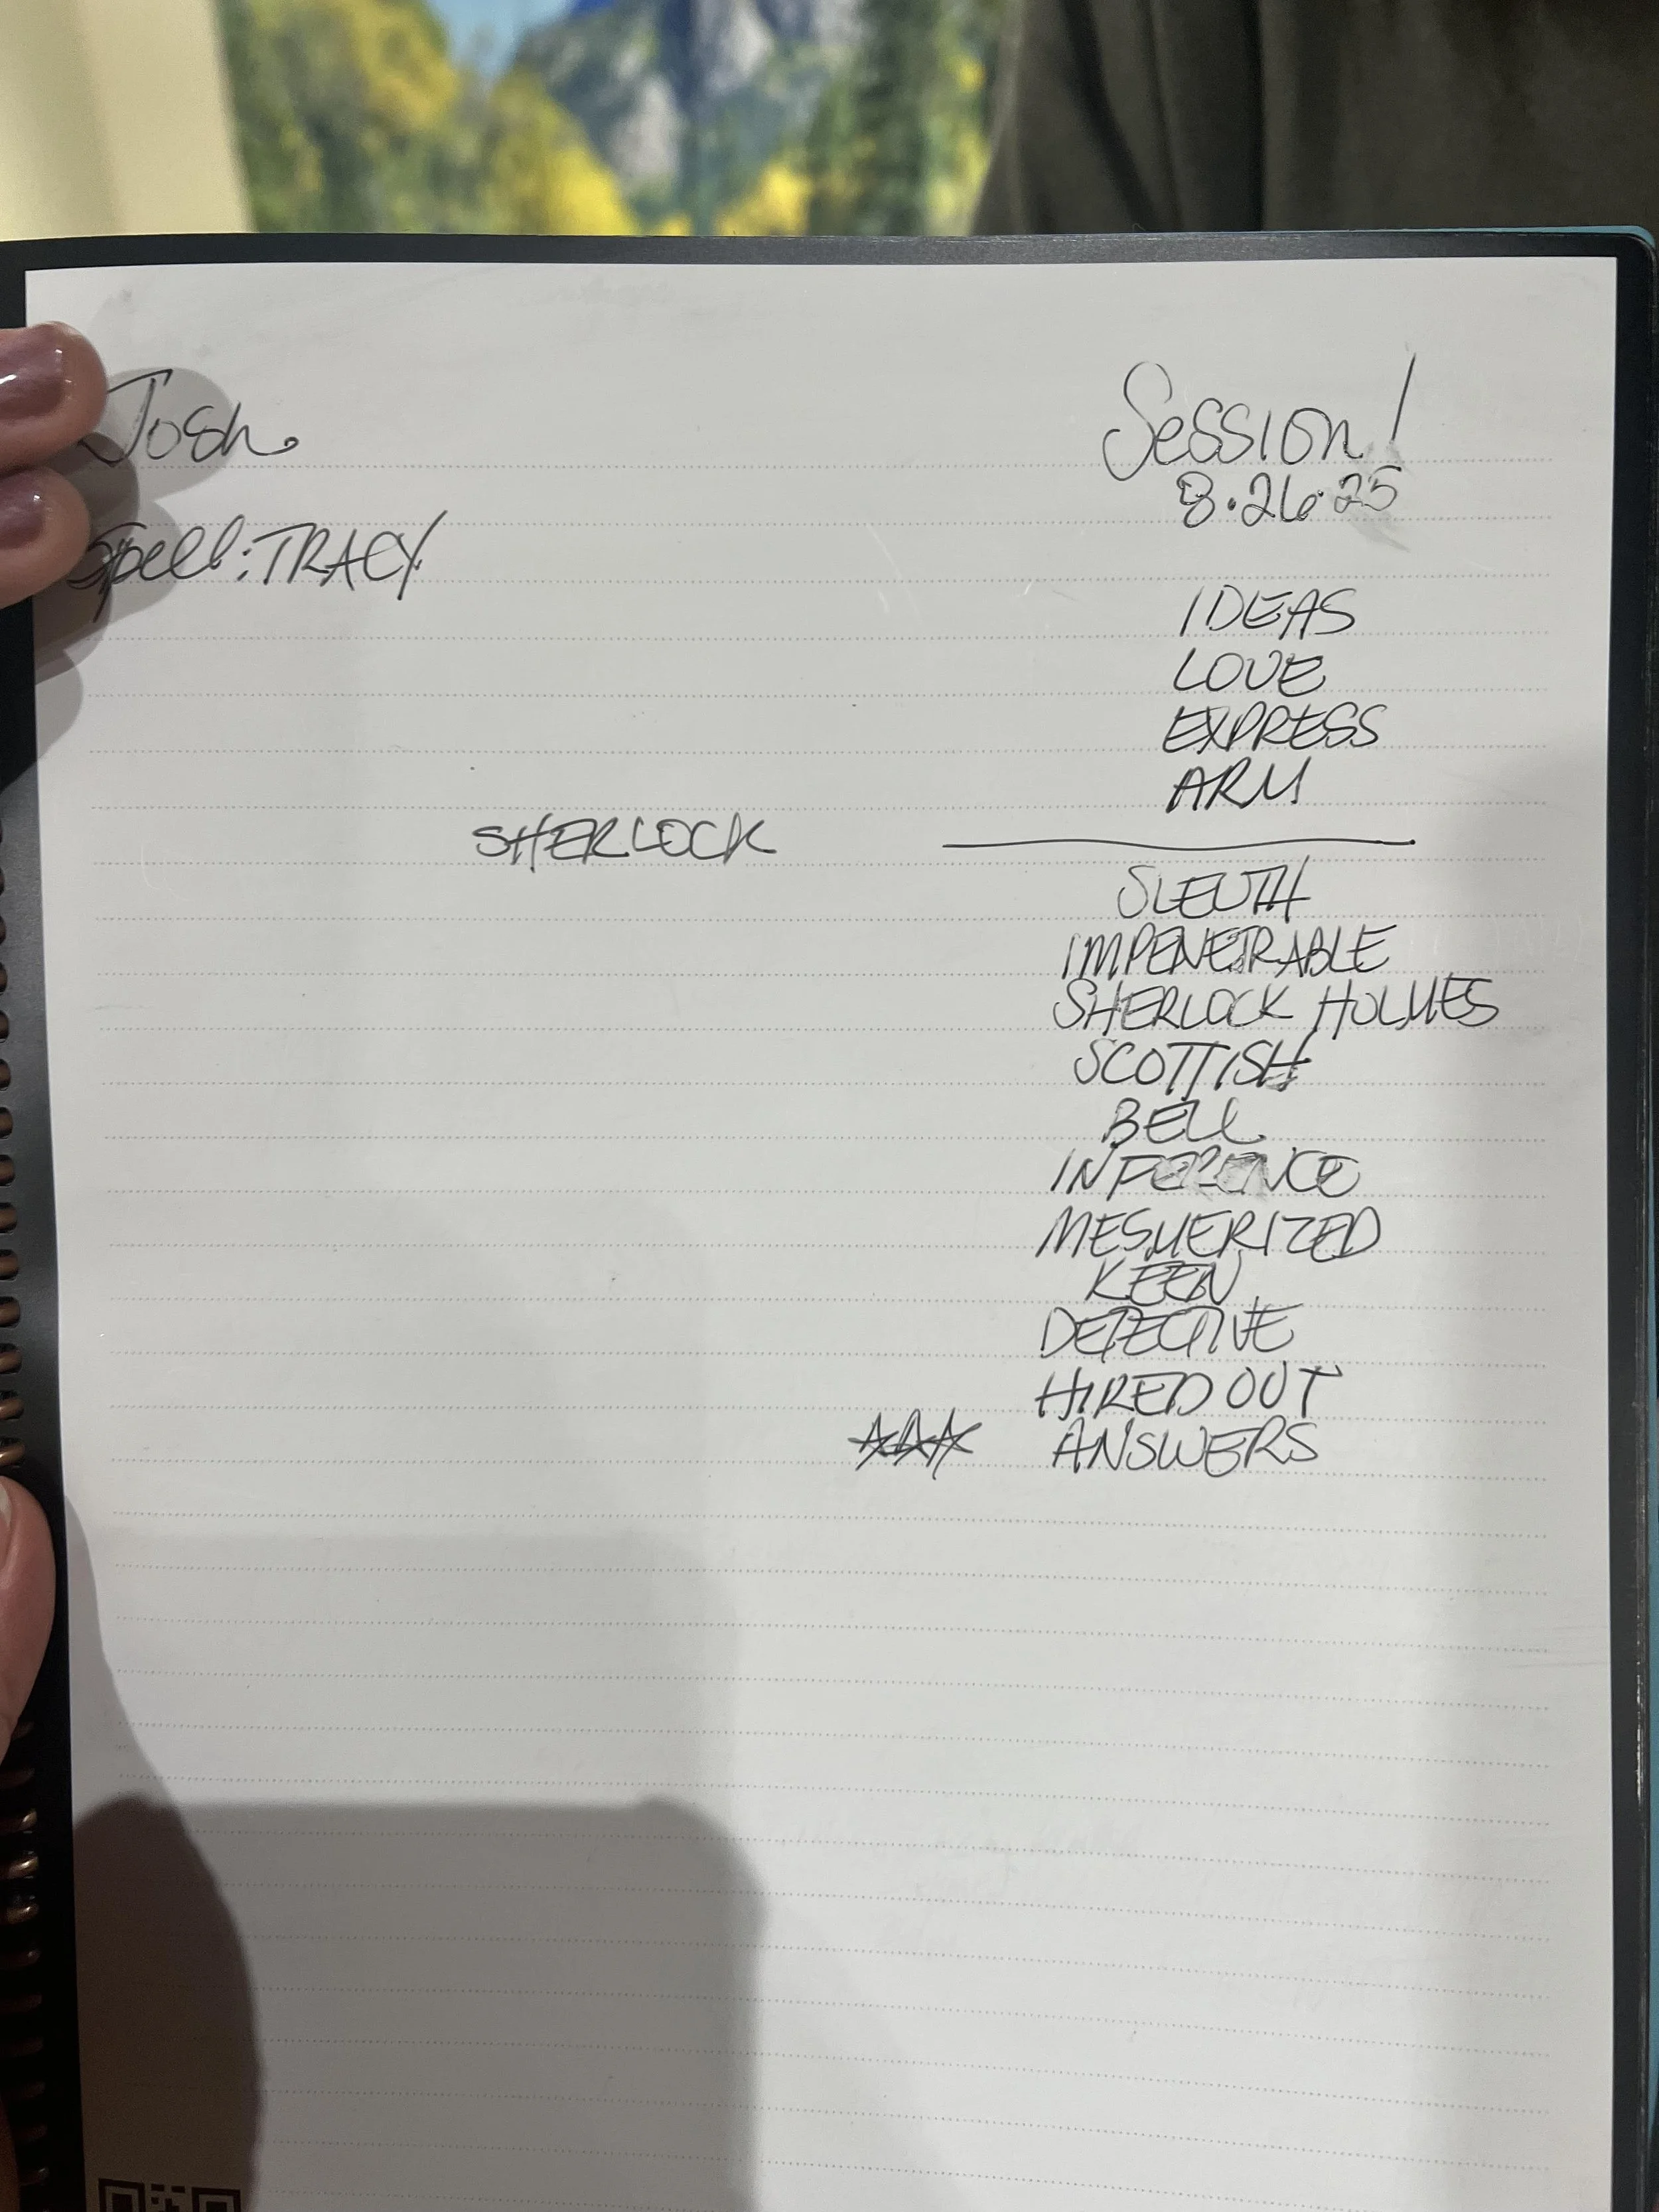 Josh
Session!
8.26.25
Spell: TRACY
IDEAS
LOVE
EXPRESS
ARM
SHERLOCK
SLEUTH
IMPENETRABLE
SHERLOCK HOLMES
SCOTTISH
BELL
INFERENCE
MESMERIZED
KEEN
DETECTIVE
HIRED OUT
ANSWERS